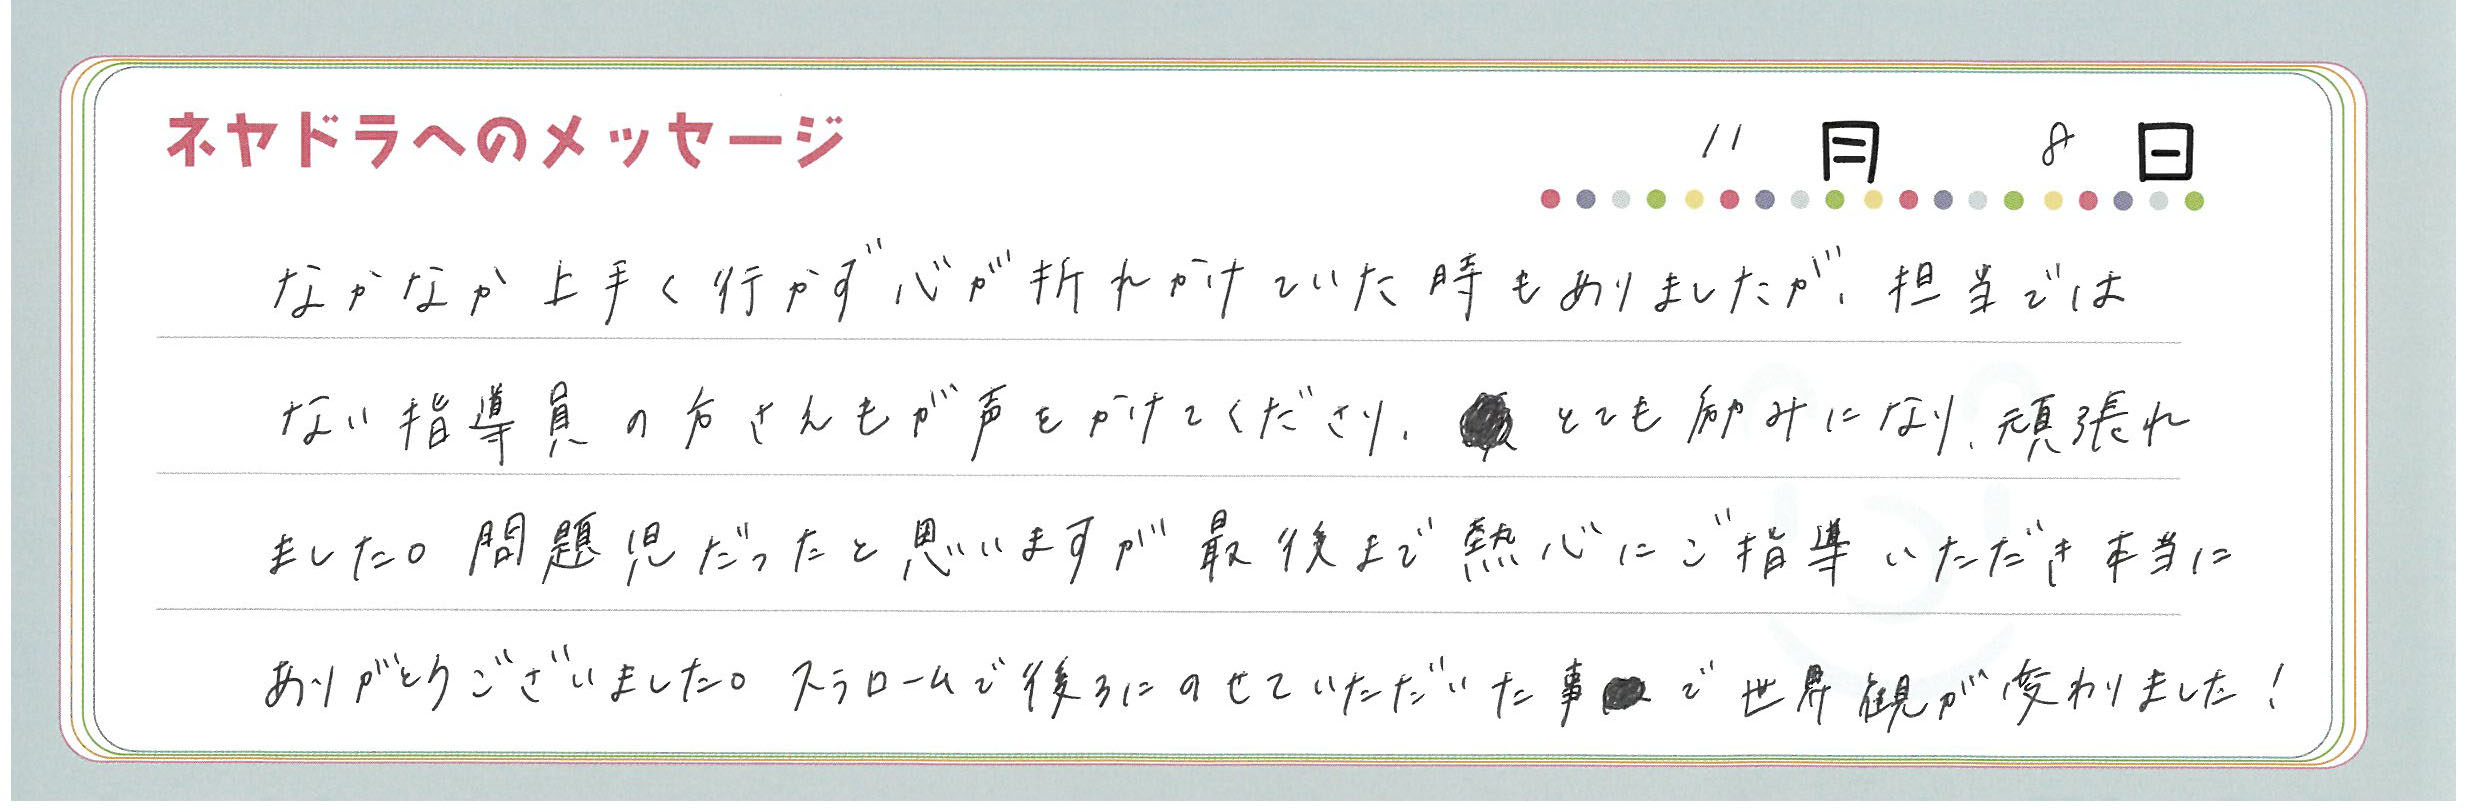 ネヤドラへのメッセージ
11月 8日
なかなか上手く行かず心が折れかけていた時もありましたが、担当では
ない指導員の方さんもが声をかけてくださり、とても励みになり、頑張れ
ました。問題児だったと思いますが最後まで熱心にご指導いただき本当に
ありがとうございました。スラロームで後ろにのせていただいた事で世界観が変わりました!